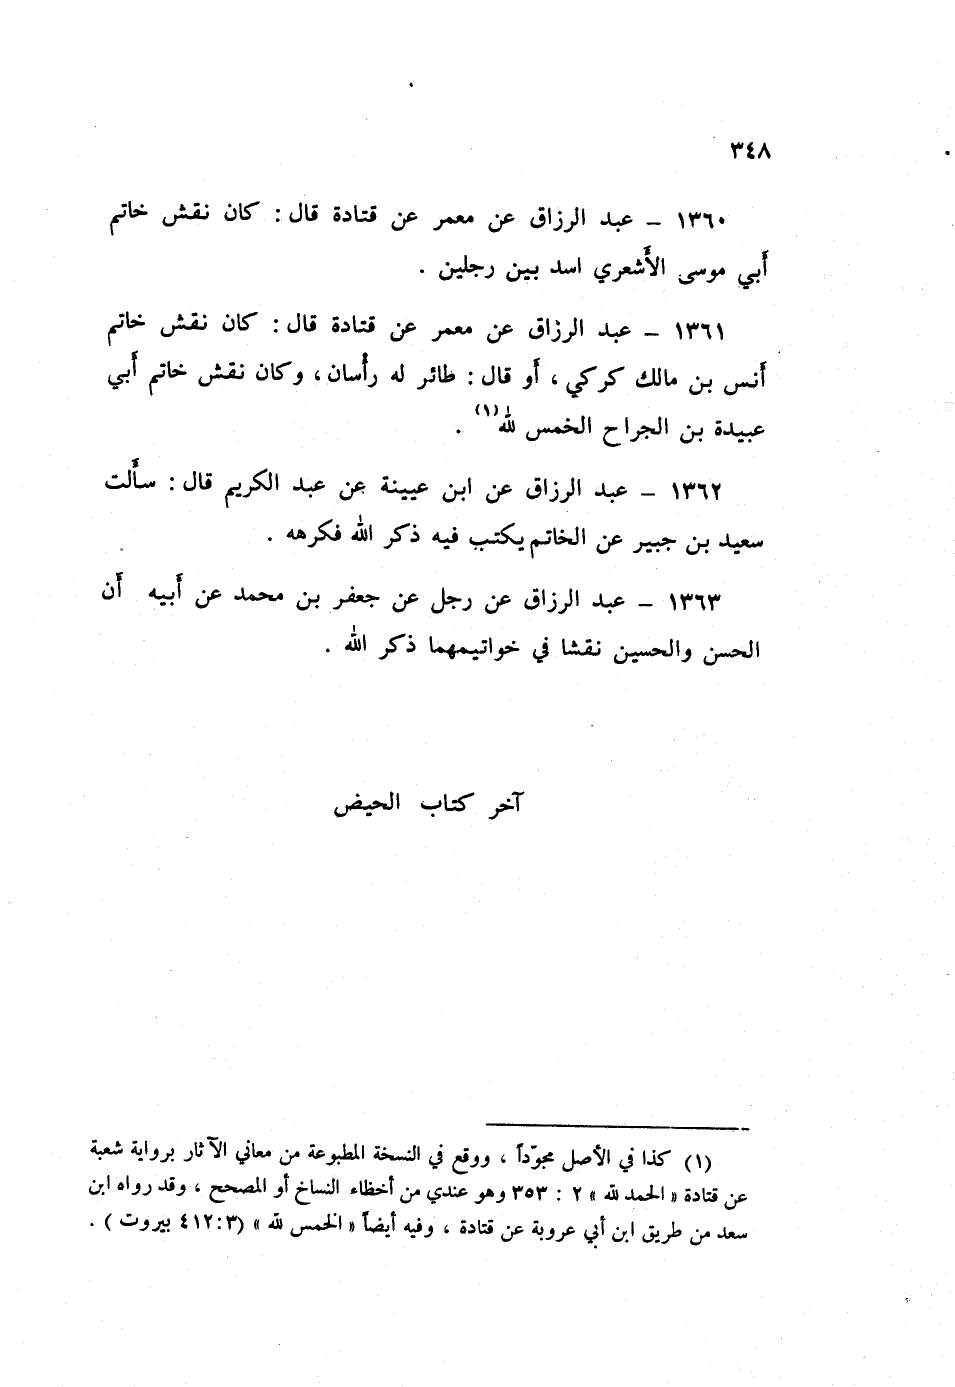 ٣٤٨
١٣٦٠ – عبد الرزاق عن معمر عن قتادة قال : كان نقش خاتم
أَبي موسى الأَشعري اسد بين رجلين .
١٣٦١ – عبد الرزاق عن معمر عن قتادة قال : كان نقش خاتم
أَنس بن مالك كركي ، أَو قال : طائر له رأْسان ، وكان نقش خاتم أَبي
عبيدة بن الجراح الخمس لله (١) .
١٣٦٢ – عبد الرزاق عن ابن عيينة عن عبد الكريم قال : سأَلت
سعيد بن جبير عن الخاتم يكتب فيه ذكر الله فكرهه .
١٣٦٣ – عبد الرزاق عن رجل عن جعفر بن محمد عن أَبيه أَن
الحسن والحسين نقشا في خواتيمهما ذكر الله .
آخر كتاب الحيض
(١) كذا في الأصل مجوّداً ، ووقع في النسخة المطبوعة من معاني الآثار برواية شعبة
عن قتادة « الحمد لله » ٢ : ٣٥٣ وهو عندي من أخطاء النساخ أو المصحح ، وقد رواه ابن
سعد من طريق ابن أبي عروبة عن قتادة ، وفيه أيضاً « الخمس لله » (٤١٢:٣ بيروت ) .